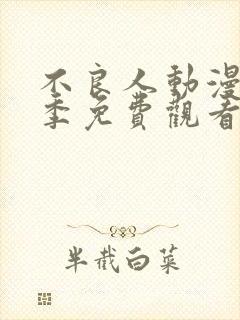 不良人動漫
季免費觀看
半截白菜